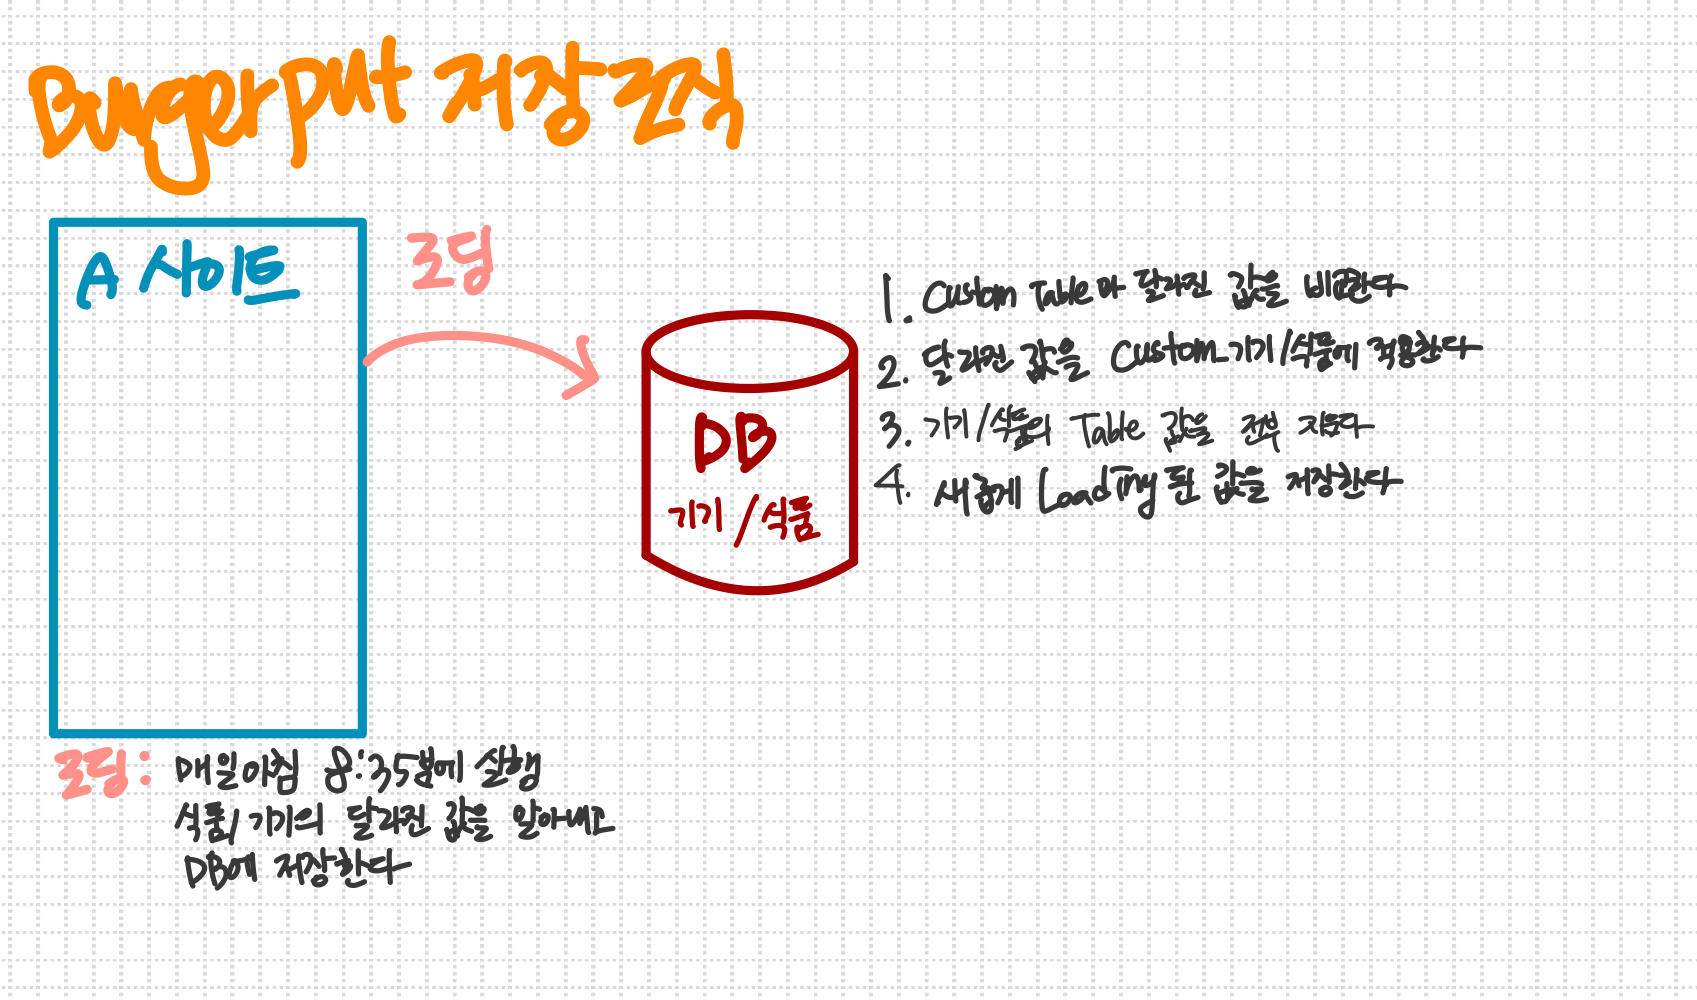 Burgerput 저장로직
A 사이트
로딩
DB
기기/식품
1. Custom Table과 달라진 값을 비교한다
2. 달라진 값을 Custom_기기/식품에 적용한다
3. 기기/식품의 Table 값을 전부 지운다
4. 새롭게 Loading된 값을 저장한다
로딩: 매일아침 8:35분에 실행
식품/기기의 달라진 값을 알아내고
DB에 저장한다